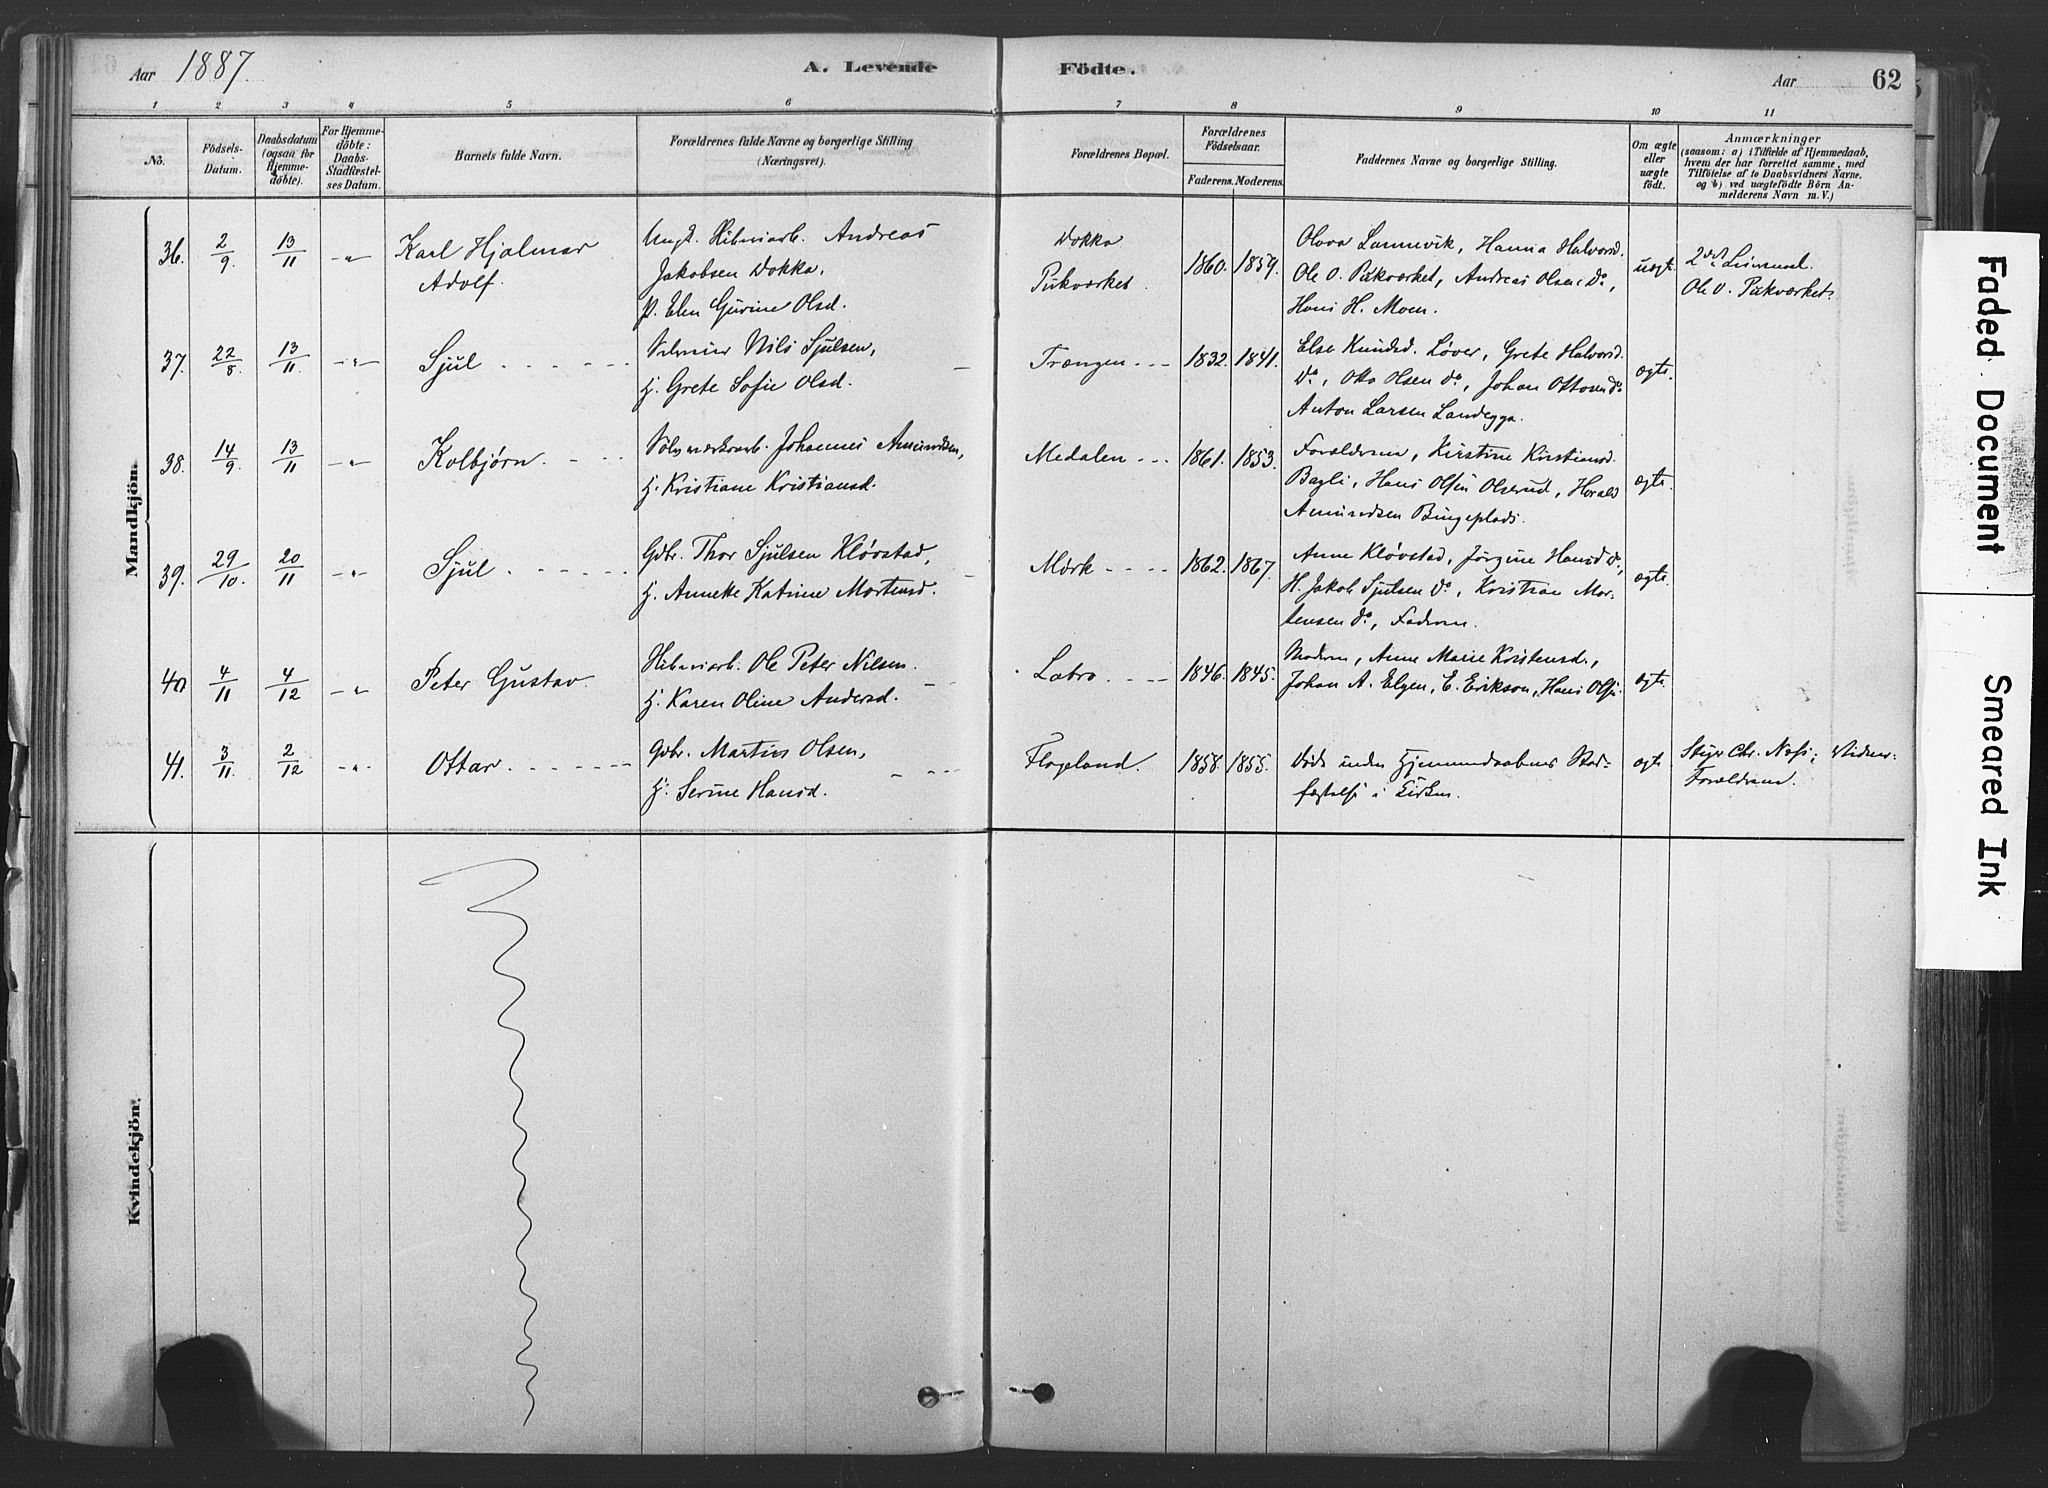 Aar 1887. A. Levende Födte. Aar 62
1 2 3 4 5 6 7 8 9 10 11
No.
Födsels-
Datum.
Daabsdatum
(ogsaa for
Hjemme-
döbte).
For Hjemme-
döbte:
Daabs-
Stadfæstel-
ses Datum.
Barnets fulde Navn.
Forældrenes fulde Navne og borgerlige Stilling
(Næringsvei).
Forældrenes Bopæl.
Forældrenes
Födselsaar.
Faderens. Moderens.
Faddernes Navne og borgerlige Stilling.
Om ægte
eller
uægte
födt.
Anmærkninger
(saasom: a) i Tilfælde af Hjemmedaab,
hvem der har forrettet samme, med
Tilföielse af to Daabsvidners Navne,
og b) ved uægtefödte Börn An-
melderens Navn m. V.)
Mandkjön.
36. 2/9 13/11 -"-
Karl Hjalmar
Adolf.
Ungk. Andreas
Jakobsen Dokka,
p. Elen Gurine Olsd.
Dokka
Pukværket.
1860. 1859.
Olava Lannevik, Hanna Halvorsd.
Ole O. Pukværket, Andreas Olsen Do,
Hans H. Moen.
uægte
2det Leiermaal.
Ole O. Pukværket.
37. 22/8 13/11 -"-
Sjul
Nils Sjulsen,
h. Grete Sofie Olsd.
Trængen
1832. 1841.
Else Knudsd. Løver, Grete Halvorsd.
Do, Otto Olsen do, Johan Ottosen do
Anton Larsen Landegga.
ægte.
38. 14/9 13/11 -"-
Kolbjørn.
Sølvværksarb. Johannes Amundsen,
h. Kristiane Kristiansd.
Medalen
1861. 1853.
Forældrene, Kirstine Kristiansd.
Bagli, Hans Olsen Olserud, Harald
Amundsen Bingeplads.
ægte.
39. 29/10 20/11 -"-
Sjul
Gbr. Thor Sjulsen Kløvstad,
h. Annette Katrine Mortensd.
Mørk
1862. 1867.
Anne Kløvstad, Jørgine Hansd Do,
H. Jakob Sjulsen Do, Kristian Mor-
tensen do, Faderen.
ægte.
40 4/11 4/12 -"-
Peter Gustav.
Ole Peter Nilsen.
h. Karen Oline Andersd.
Labro
1846. 1845.
Moderen, Anne Marie Kristensd.,
Johan A. Elgen, E. Erikson, Hans Olsen
ægte.
41. 3/11. 2/12 -"-
Ottar
Gbr. Martin Olsen,
h. Serine Hansd.
Flageland.
1858. 1855.
Døde inden Hjemmedaabens Stad-
fæstelse i Kirken.
ægte
Chr. Næss; Vidner:
Forældrene.
Kvindekjön.
Faded Document
Smeared Ink